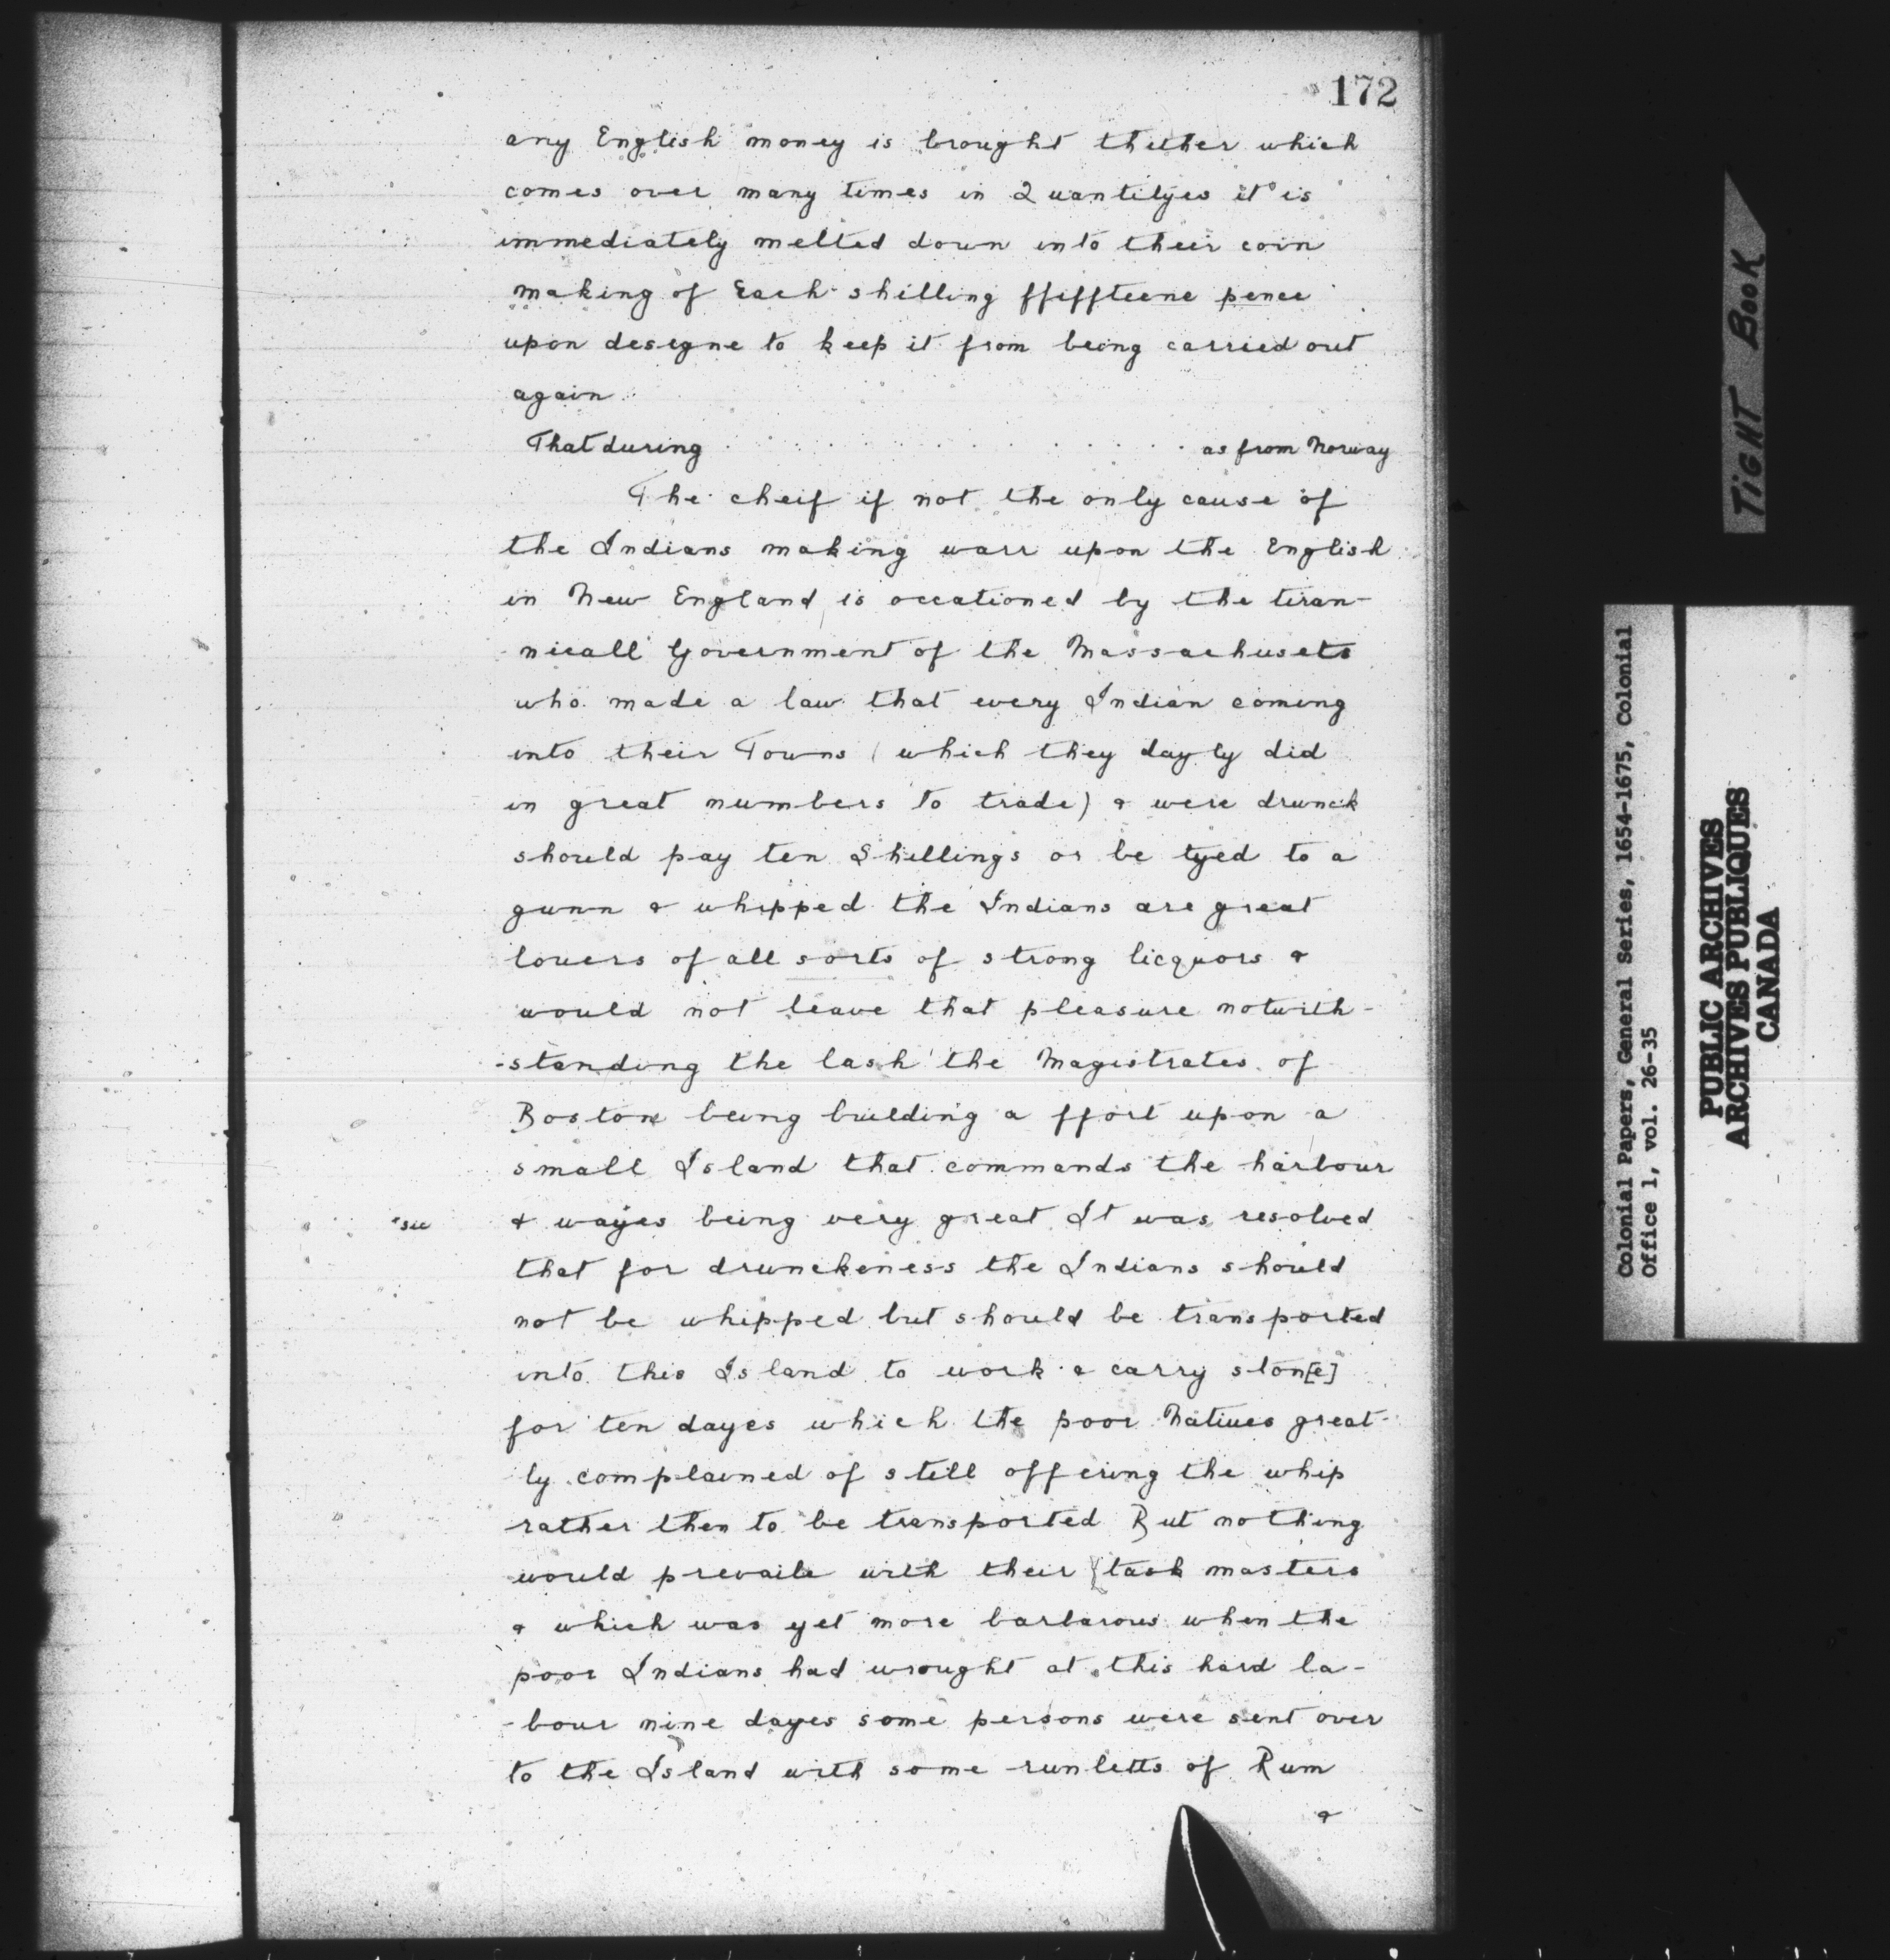 172
any English money is brought thether which
comes over many times in Quantityes it is
immediately melted down into their coin
making of Each shilling ffiffteene pence
upon designe to keep it from being carried out
again
That during . . . . . . . . . . . . . . . . as from Norway
The cheif if not the only cause of
the Indians making warr upon the English
in New England is occationed by the tiran-
nicall Government of the Massachusets
who made a law that every Indian coming
into their Towns (which they dayly did
in great numbers to trade) & were drunck
should pay ten Shillings or be tyed to a
gunn & whipped the Indians are great
lovers of all sorts of strong licquors &
would not leave that pleasure notwith-
-standing the lash the Magistrates of
Boston being building a ffort upon a
small Island that commands the harbour
*sic & wayes being very great It was resolved
that for drunckeness the Indians should
not be whipped but should be transported
into this Island to work & carry ston[e]
for ten dayes which the poor Natives great-
ly complained of still offering the whip
rather then to be transported But nothing
would prevaile with their task masters
& which was yet more barbarous when the
poor Indians had wrought at this hard la-
-bour nine dayes some persons were sent over
to the Island with some runletts of Rum
&
TIGHT BOOK
Colonial Papers, General Series, 1654-1675, Colonial
Office 1, vol. 26-35
PUBLIC ARCHIVES
ARCHIVES PUBLIQUES
CANADA